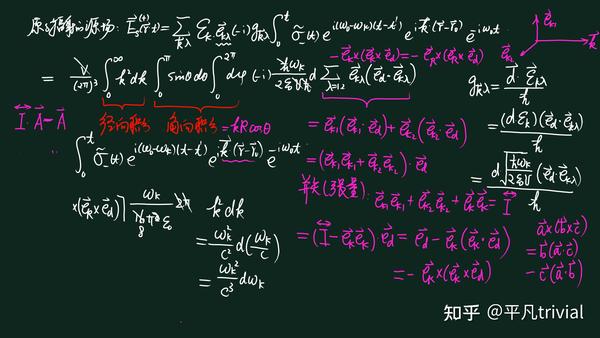 原子辐射的源场: $\vec{E}_s^{(+)}(\vec{r}t)=\sum_{\vec{k}\lambda}\mathcal{E}_k\vec{e}_{k\lambda}(-i)g_{\vec{k}\lambda}\int_0^t\tilde{\sigma}_-(t)e^{i(\omega_0-\omega_k)(t-t')}e^{i\vec{k}(\vec{r}-\vec{r}_0)}e^{-i\omega_0t}$
$-\vec{e}_k\times(\vec{e}_k\times\vec{e}_d)=-\vec{e}_k(\vec{e}_k\times\vec{e}_d)$
$\vec{e}_{k1}$ $\vec{e}_{k2}$ $\vec{k}$
$=\frac{V}{(2\pi)^3}\int_0^\infty k^2dk\int_0^\pi\sin\theta d\theta\int_0^{2\pi}d\varphi(-i)\frac{\hbar\omega_k}{2\varepsilon_0V\hbar}d\sum_{\lambda=1,2}\vec{e}_{k\lambda}(\vec{e}_d\cdot\vec{e}_{k\lambda})$
$g_{\vec{k}\lambda}=\frac{\vec{d}\cdot\vec{\mathcal{E}}_{k\lambda}}{\hbar}$
$\overleftrightarrow{I}\cdot\vec{A}=\vec{A}$
径向积分 角向积分 $=kR\cos\theta$
$=\frac{(d\mathcal{E}_k)(\vec{e}_d\cdot\vec{e}_{k\lambda})}{\hbar}$
$\int_0^t\tilde{\sigma}_-(t)e^{i(\omega_0-\omega_k)(t-t')}e^{i\vec{k}(\vec{r}-\vec{r}_0)}e^{-i\omega_0t}$
$=\vec{e}_{k1}(\vec{e}_{k1}\cdot\vec{e}_d)+\vec{e}_{k2}(\vec{e}_{k2}\cdot\vec{e}_d)$
$=(\vec{e}_{k1}\vec{e}_{k1}+\vec{e}_{k2}\vec{e}_{k2})\cdot\vec{e}_d$
$=\frac{d\sqrt{\frac{\hbar\omega_k}{2\varepsilon_0V}}(\vec{e}_d\cdot\vec{e}_{k\lambda})}{\hbar}$
并矢(张量). $\vec{e}_{k1}\vec{e}_{k1}+\vec{e}_{k2}\vec{e}_{k2}+\vec{e}_k\vec{e}_k=\overleftrightarrow{I}$
$\times(\vec{e}_k\times\vec{e}_d)]$ $k^2dk$
$=\frac{\omega_k^2}{c^2}d(\frac{\omega_k}{c})$
$=\frac{\omega_k^2}{c^3}d\omega_k$
$=(\overleftrightarrow{I}-\vec{e}_k\vec{e}_k)\cdot\vec{e}_d=\vec{e}_d-\vec{e}_k(\vec{e}_k\cdot\vec{e}_d)$
$=-\vec{e}_k\times(\vec{e}_k\times\vec{e}_d)$
$\vec{a}\times(\vec{b}\times\vec{c})$
$=\vec{b}(\vec{a}\cdot\vec{c})$
$-\vec{c}(\vec{a}\cdot\vec{b})$
知乎 @平凡trivial